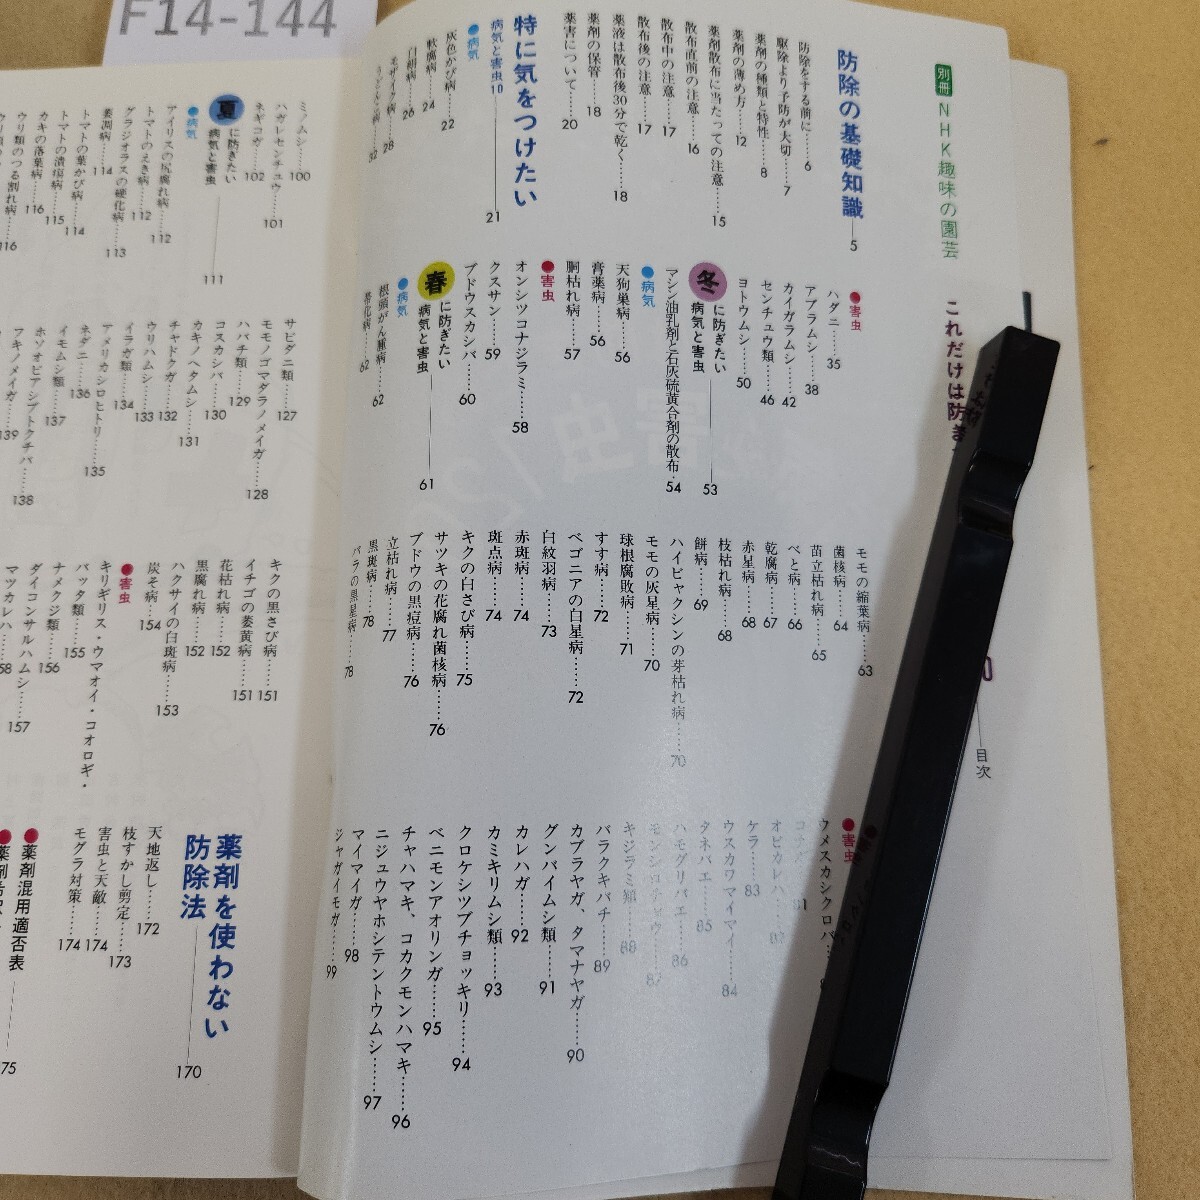 F14-144
別冊 NHK趣味の園芸
これだけは防ぎ
目次
防除の基礎知識 5
防除をする前に……6
駆除より予防が大切……7
薬剤の種類と特性……8
薬剤の薄め方……12
薬剤散布に当たっての注意……15
散布直前の注意……16
散布中の注意……17
散布後の注意……17
薬液は散布後30分で乾く……18
薬剤の保管……18
薬害について……20
特に気をつけたい
病気と害虫10 21
●病気
灰色かび病……22
軟腐病……24
白絹病……26
モザイク病……28
うどんこ病……32
●害虫
ハダニ……35
アブラムシ……38
カイガラムシ……42
センチュウ類……46
ヨトウムシ……50
冬に防ぎたい
病気と害虫 53
マシン油乳剤と石灰硫黄合剤の散布……54
●病気
天狗巣病……56
膏薬病……56
胴枯れ病……57
●害虫
オンシツコナジラミ……58
クスサン……59
ブドウスカシバ……60
春に防ぎたい
病気と害虫 61
●病気
根頭がん腫病……62
帯化病……62
モモの縮葉病……63
菌核病……64
苗立枯れ病……65
べと病……66
乾腐病……67
赤星病……68
枝枯れ病……68
餅病……69
ハイビャクシンの芽枯れ病……70
モモの灰星病……70
球根腐敗病……71
すす病……72
ベゴニアの白星病……72
白紋羽病……73
赤斑病……74
斑点病……74
キクの白さび病……75
サツキの花腐れ菌核病……76
ブドウの黒痘病……76
立枯れ病……77
黒斑病……78
バラの黒星病……78
●害虫
ウメスカシクロバ……
オビカレハ……
ケラ……83
ウスカワマイマイ……84
タネバエ……85
ハモグリバエ……86
モンシロチョウ……87
キジラミ類……88
バラクキバチ……89
カブラヤガ、タマナヤガ……90
グンバイムシ類……91
カレハガ……92
カミキリムシ類……93
クロケシツブチョッキリ……94
ベニモンアオリンガ……95
チャハマキ、コカクモンハマキ……96
ニジュウヤホシテントウムシ……97
マイマイガ……98
ジャガイモガ……99
ミノムシ……100
ハガレセンチュウ……101
ネギコガ……102
夏に防ぎたい
病気と害虫 111
●病気
アイリスの尻腐れ病……112
トマトのえき病……112
グラジオラスの硬化病……113
葉凋病……114
トマトの葉かび病……114
トマトの潰瘍病……115
カキの落葉病……116
ウリ類のつる割れ病……116
サビダニ類……127
モモノゴマダラノメイガ……128
ハバチ類……129
コスカシバ……130
カキノヘタムシ……131
チャドクガ……132
ウリハムシ……133
イラガ類……134
アメリカシロヒトリ……135
ネダニ……136
イモムシ類……137
ホソオビアシブトクチバ……138
フキノメイガ……139
キクの黒さび病……151
イチゴの萎黄病……151
花枯れ病……152
黒腐れ病……152
ハクサイの白斑病……153
炭そ病……154
●害虫
キリギリス・ウマオイ・コオロギ・
バッタ類……155
ナメクジ類……156
ダイコンサルハムシ……157
マツカレハ……158
薬剤を使わない
防除法 170
天地返し……172
枝すかし剪定……173
害虫と天敵……174
モグラ対策……174
●薬剤混用適否表 175